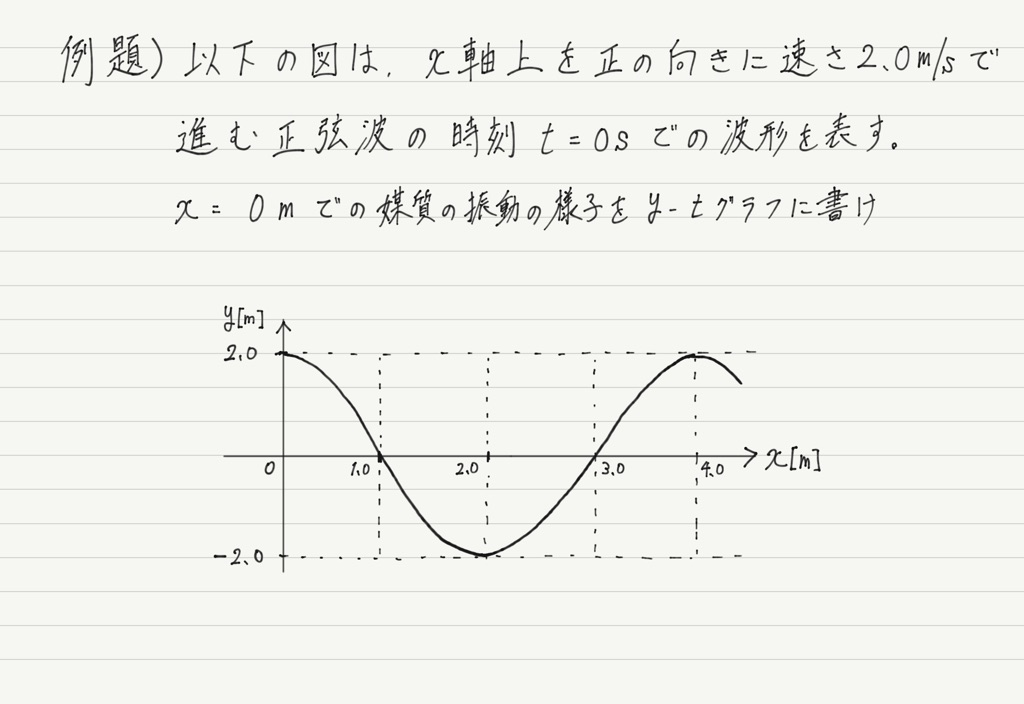 例題) 以下の図は、x軸上を正の向きに速さ2.0m/sで
進む正弦波の時刻 t=0s での波形を表す。
x = 0m での媒質の振動の様子を y-tグラフに書け
y[m]
2.0
0
1.0
2.0
3.0
4.0
x[m]
-2.0